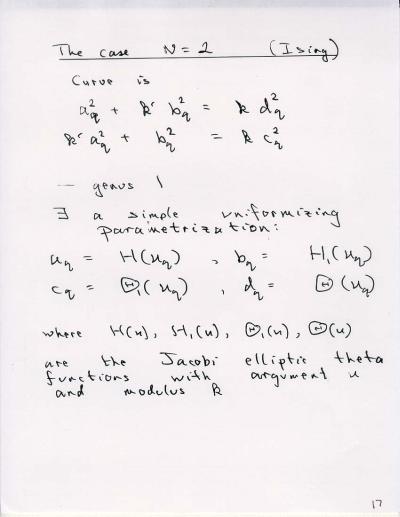 The case N = 2 (Ising)
Curve is
a_q^2 + k' b_q^2 = k d_q^2
k' a_q^2 + b_q^2 = k c_q^2
— genus 1
∃ a simple uniformizing
parametrization:
a_q = H(u_q) , b_q = H_1(u_q)
c_q = Θ_1(u_q) , d_q = Θ(u_q)
where H(u), H_1(u), Θ_1(u), Θ(u)
are the Jacobi elliptic theta
functions with argument u
and modulus k
17